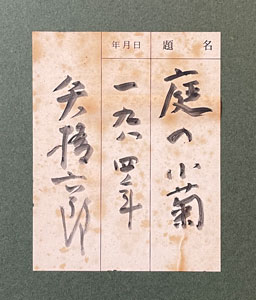 題名
庭の小菊
年月日
一九八四年
矢橋六郎